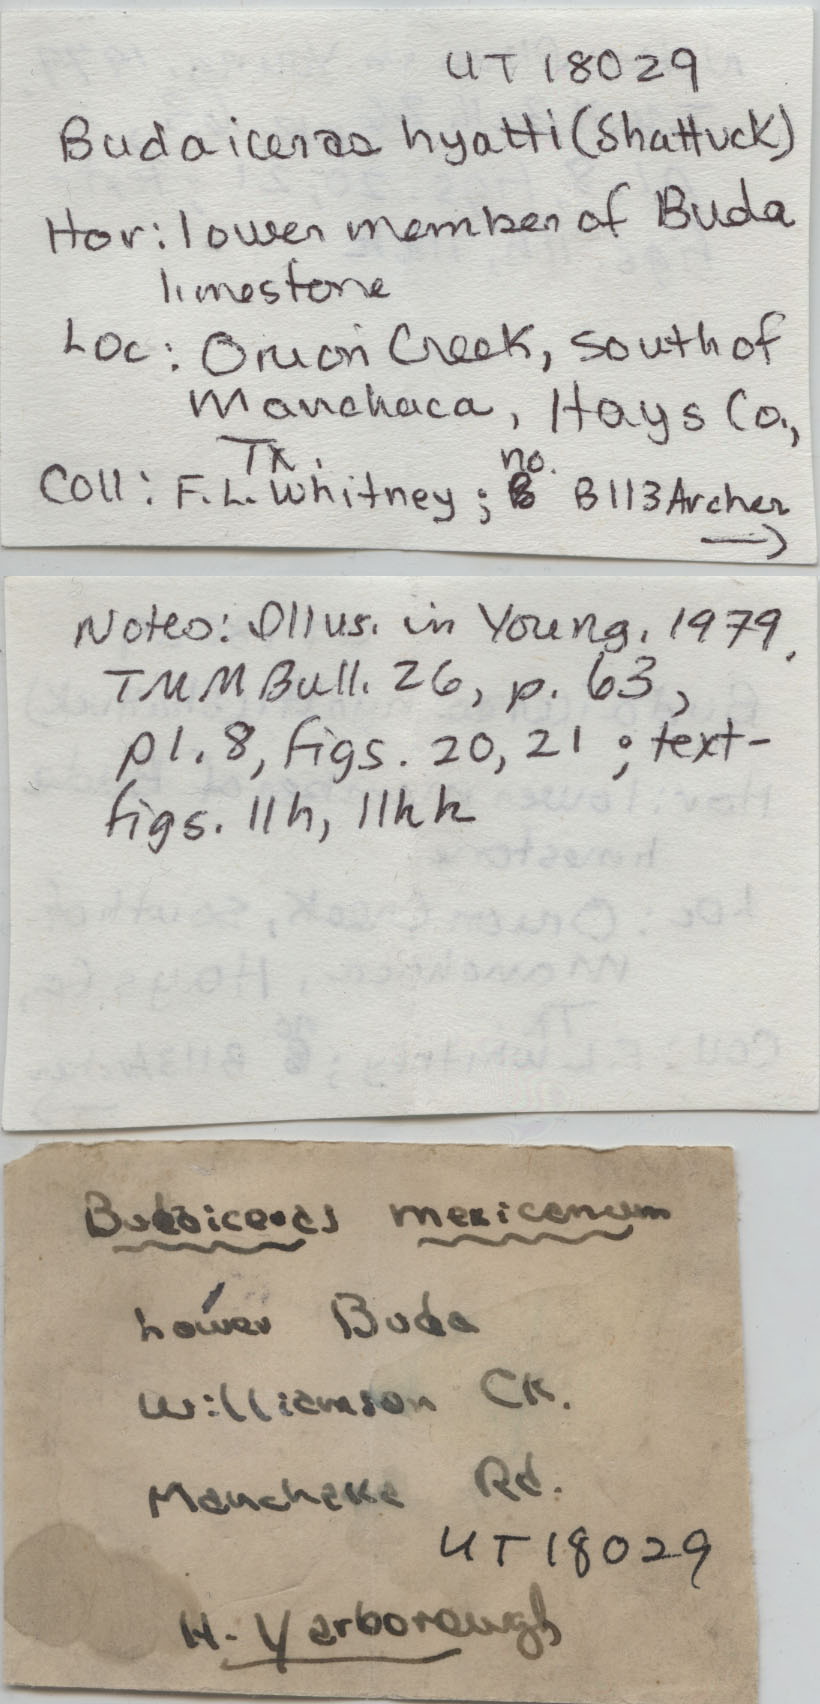 UT 18029
Budaiceras hyatti (Shattuck)
Hor: lower member of Buda
limestone
Loc: Onion Creek, south of
Manchaca, Hays Co.,
Tx.
no.
Coll: F.L. Whitney; B113 Archer
→
Notes: Illus. in Young, 1979,
TMM Bull. 26, p. 63,
pl. 8, figs. 20, 21; text-
figs. 11h, 11kk
Budaiceras mexicanum
Lower Buda
Williamson CK.
Manchaka Rd.
UT 18029
H. Yarborough